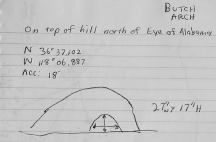 BUTCH
ARCH
On top of hill north of Eye of Alabama
N 36° 37.102
W 118° 06.887
ACC: 18'
27"W 17"H